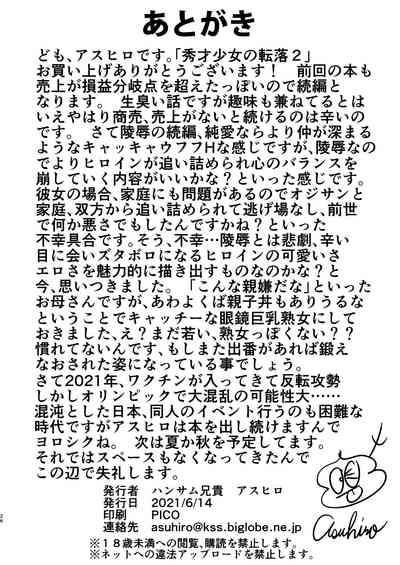 あとがき
ども、アスヒロです。「秀才少女の転落２」
お買い上げありがとうございます！　前回の本も
売上が損益分岐点を超えたっぽいので続編と
なります。　生臭い話ですが趣味も兼ねてるとは
いえやはり商売、売上がないと続けるのは辛いの
です。　さて陵辱の続編、純愛ならより仲が深まる
ようなキャッキャウフフHな感じですが、陵辱なの
でよりヒロインが追い詰められ心のバランスを
崩していく内容がいいかな？といった感じです。
彼女の場合、家庭にも問題があるのでオジサンと
家庭、双方から追い詰められて逃げ場なし、前世
で何か悪さでもしたんですかね？といった
不幸具合です。そう、不幸…陵辱とは悲劇、辛い
目に会いズタボロになるヒロインの可愛いさ
エロさを魅力的に描き出すものなのかな？と
今、思いつきました。「こんな親嫌だな」といった
お母さんですが、あわよくば親子丼もありうるな
ということでキャッチーな眼鏡巨乳熟女にして
おきました、え？まだ若い、熟女っぽくない？？
慣れてないんです、もしまた出番があれば鍛え
なおされた姿になっている事でしょう。
さて2021年、ワクチンが入ってきて反転攻勢
しかしオリンピックで大混乱の可能性大……
混沌とした日本、同人のイベント行うのも困難な
時代ですがアスヒロは本を出し続けますんで
ヨロシクね。　次は夏か秋を予定してます。
それではスペースもなくなってきたんで
この辺で失礼します。
発行者　ハンサム兄貴　アスヒロ
発行日　2021/6/14
印刷　PICO
連絡先　asuhiro@kss.biglobe.ne.jp
※１８歳未満への閲覧、購読を禁止します。
※ネットへの違法アップロードを禁止します。
asuhiro